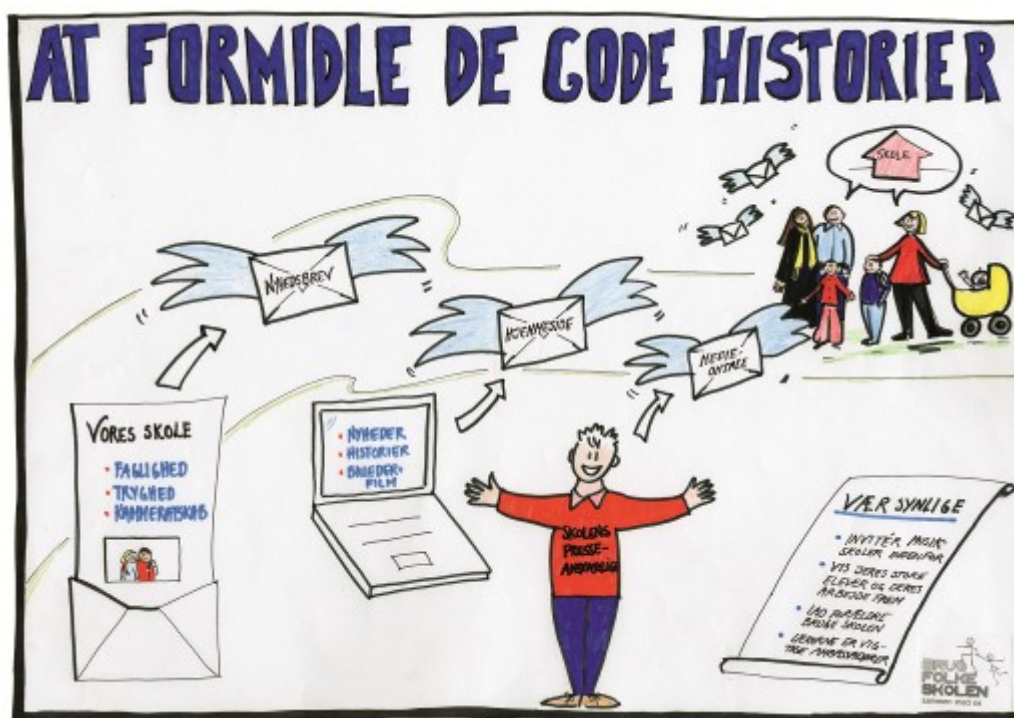 AT FORMIDLE DE GODE HISTORIER
SKOLE
NYHEDSBREV
HJEMMESIDE
MEDIE-
OMTALE
VORES SKOLE
• FAGLIGHED
• TRYGHED
• KAMMERATSKAB
• NYHEDER
• HISTORIER
• BILLEDER+
FILM
SKOLENS
PRESSE-
ANSVARLIG
VÆR SYNLIGE
• INVITÉR MUSIK-
SKOLER INDENFOR
• VIS JERES STORE
ELEVER OG DERES
ARBEJDE FREM
• LAD FORÆLDRE
BRUGE SKOLEN
• LÆRERNE ER VIG-
TIGE AMBASSADØRER
BRUG
FOLKE
SKOLEN
sammen med os